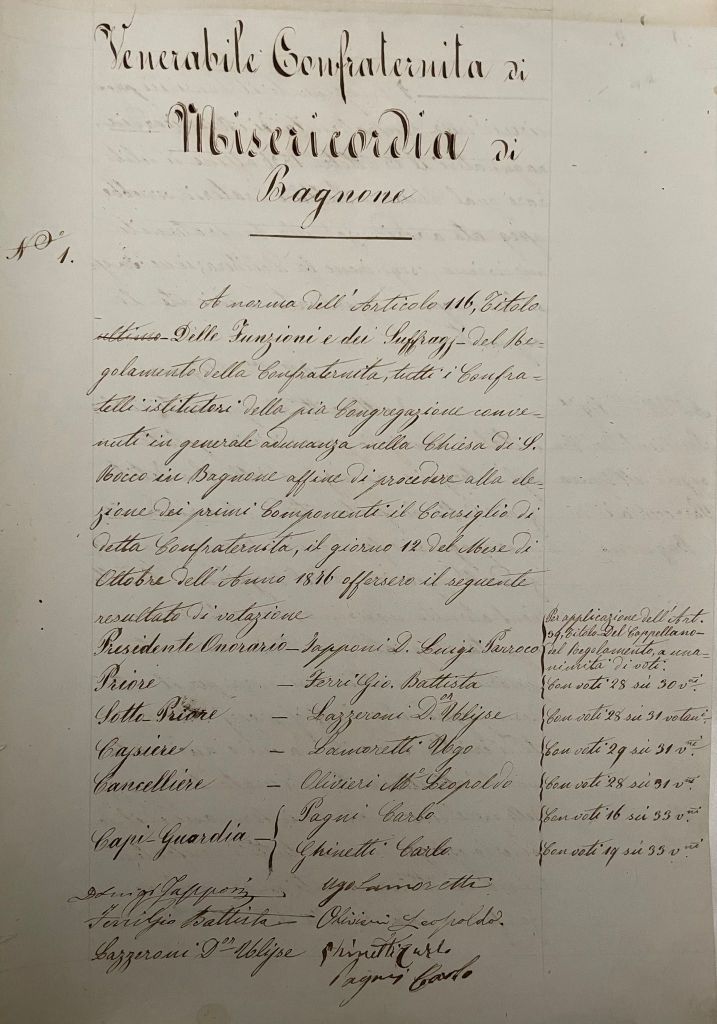 Venerabile Confraternita di
Misericordia di
Bagnone
N.o 1.
A norma dell'Articolo 116, Titolo
ultimo - Delle Funzioni e dei Suffragj - del Re-
golamento della Confraternita, tutti i Confra-
telli istitutori della pia Congregazione conve-
nuti in generale adunanza nella Chiesa di S.
Rocco in Bagnone affine di procedere alla ele-
zione dei primi Componenti il Consiglio di
detta Confraternita, il giorno 12 del Mese di
Ottobre dell'Anno offersero il seguente
resultato di votazione
Presidente Onorario - Japponi D. Luigi Parroco {Per applicazione dell'Art.
39, Titolo - Del Cappellano -
del Regolamento, a una-
nimità di voti.
Priore - Ferri Gio. Battista {Con voti 28 su 30 v.nti
Sotto-Priore - Lazzeroni D.or Ulisse {Con voti 28 su 31 votanti.
Cassiere - Lamoretti Ugo {Con voti 29 su 31 v.nti
Cancelliere - Olivieri M.o Leopoldo {Con voti 28 su 31 v.nti
Capi-Guardia - { Pagni Carlo {Con voti 16 su 33 v.nti
Ghinetti Carlo {Con voti 19 su 33 v.nti
D Luigi Japponi Ugo Lamoretti
Ferri Gio Battista Olivieri Leopoldo.
Lazzeroni D.or Ulisse Ghinetti Carlo
Pagni Carlo